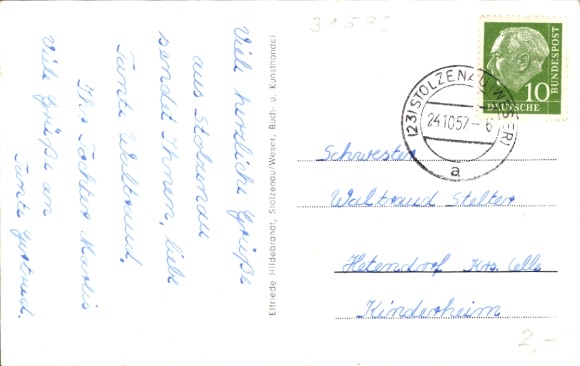 Viele herzliche Grüße
aus Stolzenau
sendet Ihnen, liebe
Tante Waltraud,
Ihre Tochter Marlis
Viele Grüße an
Tante Gertrud.
Elfriede Hildebrandt, Stolzenau/Weser, Buch- u. Kunsthandel
31592
10
DEUTSCHE
BUNDESPOST
(23) STOLZENAU (WESER)
24.10.57.- 6
a
Schwester
Waltraud Stalter
Hetendorf Krs. Celle
Kinderheim
2,-